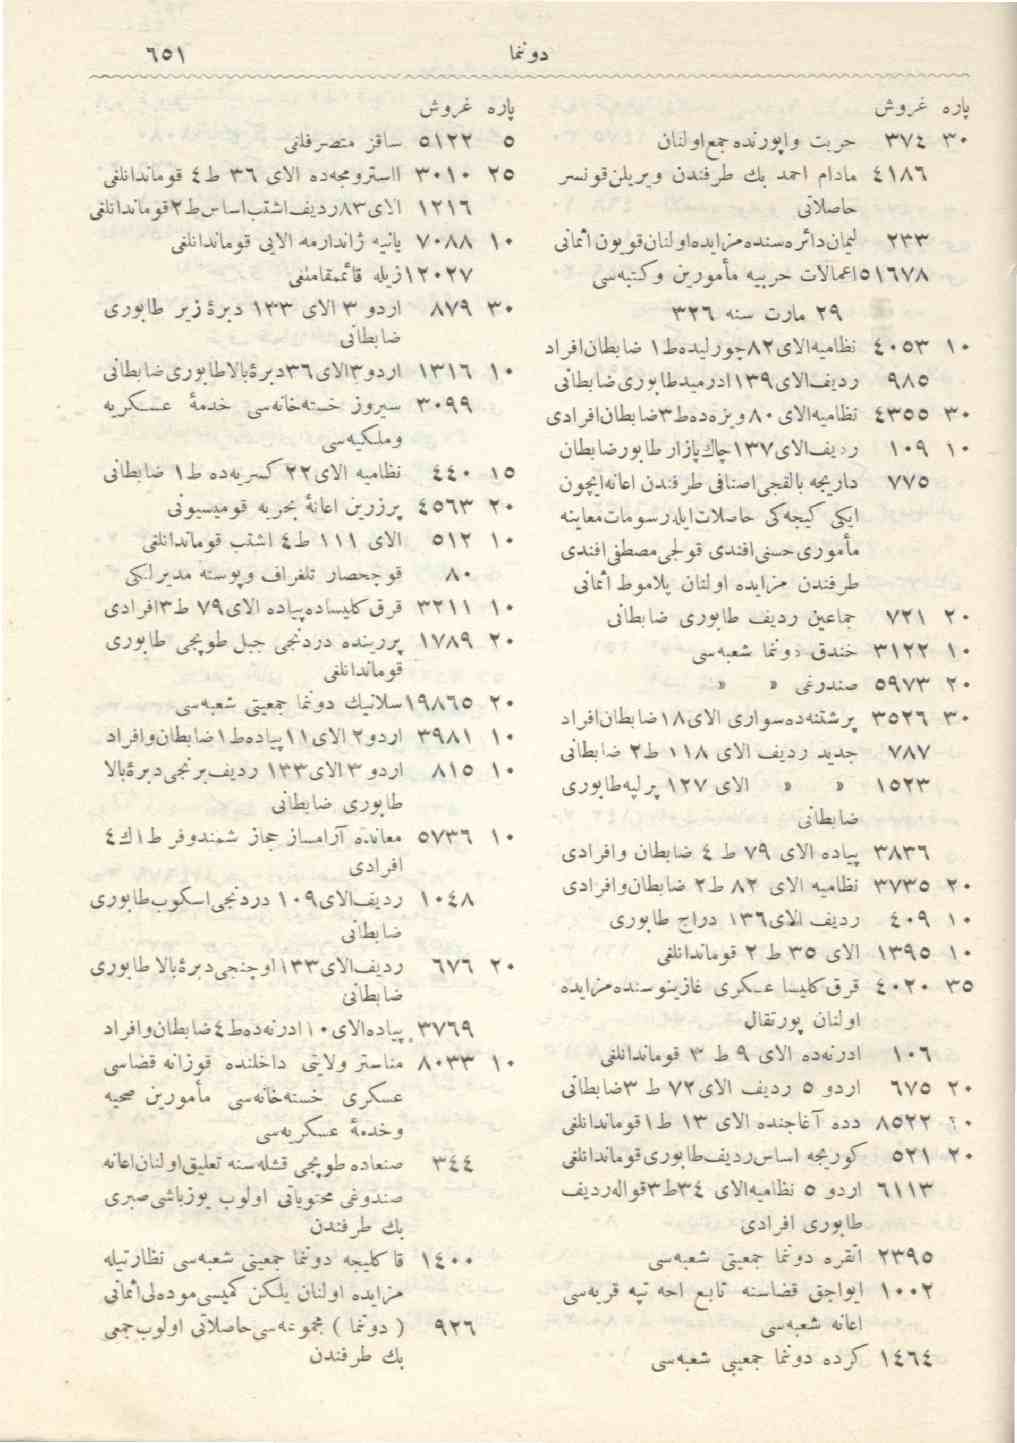 دوننما
٦٥١
پاره غروش
٣٠ ٣٧٤ حریت واپورنده جمع اولنان
٤١٨٦ مادام احمد بك طرفندن ویریلن قونسر
حاصلاتی
٢٣٣ لیمان دائره سنده مزایده اولنان قویون اثمانی
٥١٦٧٨ اعمالات حربیه مأمورین وکتبه سی
٢٩ مارت سنه ٣٢٦
١٠ ٤٠٥٣ نظامیه الای ٨٢ چورلیده ط ١ ضابطان افراد
٩٨٥ ردیف الای ١٣٩ ادرمید طابوری ضابطانی
٣٠ ٤٣٥٥ نظامیه الای ٨٠ ویزه ده ط ٣ ضابطان افرادی
١٠ ١٠٩ ردیف الای ١٣٧ چاك پازار طابور ضابطان
٧٧٥ داریجه بالقجی اصنافی طرفندن اعانه ایچون
ایکی کیجه کی حاصلات ایله رسومات معاینه
مأموری حسنی افندی قولجی مصطفی افندی
طرفندن مزایده اولنان پلاموط اثمانی
٢٠ ٧٢١ جماعین ردیف طابوری ضابطانی
١٠ ٣١٢٢ خندق دوننما شعبه سی
٢٠ ٥٩٧٣ صندرغی » »
٣٠ ٣٥٢٦ پرشتنه ده سواری الای ١٨ ضابطان افراد
٧٨٧ جدید ردیف الای ١١٨ ط ٢ ضابطانی
١٥٢٣ » » الای ١٢٧ پرلپه طابوری
ضابطانی
٣٨٣٦ پیاده الای ٧٩ ط ٤ ضابطان وافرادی
٢٠ ٣٧٣٥ نظامیه الای ٨٢ ط ٢ ضابطان وافرادی
١٠ ٤٠٩ ردیف الای ١٣٦ دراج طابوری
١٠ ١٣٩٥ الای ٣٥ ط ٢ قوماندانلغی
٣٥ ٤٠٢٠ قرق کلیسا عسکری غازینوسنده مزایده
اولنان پورتقال
١٠٦ ادرنه ده الای ٩ ط ٣ قوماندانلغی
٢٠ ٦٧٥ اردو ٥ ردیف الای ٧٢ ط ٣ ضابطانی
٨٥٢٢ دده آغاجنده الای ١٣ ط ١ قوماندانلغی
٢٠ ٥٢١ کوریجه اساس ردیف طابوری قوماندانلغی
٦١١٣ اردو ٥ نظامیه الای ٣٤ ط ٣ قواله ردیف
طابوری افرادی
٢٣٩٥ انقره دوننما جمعیتی شعبه سی
١٠٠٢ ایواجق قضاسنه تابع احه تپه قریه سی
اعانه شعبه سی
١٤٦٤ کرده دوننما جمعیتی شعبه سی
پاره غروش
٥ ٥١٢٢ ساقز متصرفلغی
٢٥ ٣٠١٠ استرومجه ده الای ٣٦ ط ٤ قوماندانلغی
١٢١٦ الای ٨٣ ردیف اشتب اساس ط ٢ قوماندانلغی
١٠ ٧٠٨٨ یانیه ژاندارمه الایی قوماندانلغی
١٢٠٢٧ زیله قائممقاملغی
٣٠ ٨٧٩ اردو ٣ الای ١٣٣ دبرۀ زیر طابوری
ضابطانی
١٠ ١٣١٦ اردو ٣ الای ٣٦ دبرۀ بالا طابوری ضابطانی
٣٠٩٩ سیروز خسته خانه سی خدمۀ عسکریه
وملکیه سی
١٥ ٤٤٠ نظامیه الای ٢٢ کسریه ده ط ١ ضابطانی
٢٠ ٤٥٦٣ پرزرین اعانۀ بحریه قومیسیونی
١٠ ٥١٢ الای ١١١ ط ٤ اشتب قوماندانلغی
٨٠ قوجحصار تلغراف وپوسته مدیرلکی
١٠ ٣٢١١ قرق کلیساده پیاده الای ٧٩ ط ٣ افرادی
٢٠ ١٧٨٩ پرزرینده دردنجی جبل طوپجی طابوری
قوماندانلغی
٢٠ ١٩٨٦٥ سلانیك دوننما جمعیتی شعبه سی
١٠ ٣٩٨١ اردو ٢ الای ١١ پیاده ط ١ ضابطان وافراد
١٠ ٨١٥ اردو ٣ الای ١٣٣ ردیف برنجی دبرۀ بالا
طابوری ضابطانی
١٠ ٥٧٣٦ معانده آرامساز حجاز شمندوفر ط ١ ك ٤
افرادی
١٠٤٨ ردیف الای ١٠٩ دردنجی اسکوب طابوری
ضابطانی
٢٠ ٦٧٦ ردیف الای ١٣٣ اوچنجی دبرۀ بالا طابوری
ضابطانی
٣٧٦٩ پیاده الای ١٠ ادرنه ده ط ٤ ضابطان وافراد
١٠ ٨٠٣٣ مناستر ولایتی داخلنده قوزانه قضاسی
عسکری خسته خانه سی مأمورین صحیه
وخدمۀ عسکریه سی
٣٤٤ صنعاده طوپجی قشله سنه تعلیق اولنان اعانه
صندوغی محتویاتی اولوب یوزباشی صبری
بك طرفندن
١٤٠٠ قاکلیجه دوننما جمعیتی شعبه سی نظارتیله
مزایده اولنان یلکن کمیسی موده لی اثمانی
٩٢٦ ( دوننما ) مجموعه سی حاصلاتی اولوب جمعی
بك طرفندن